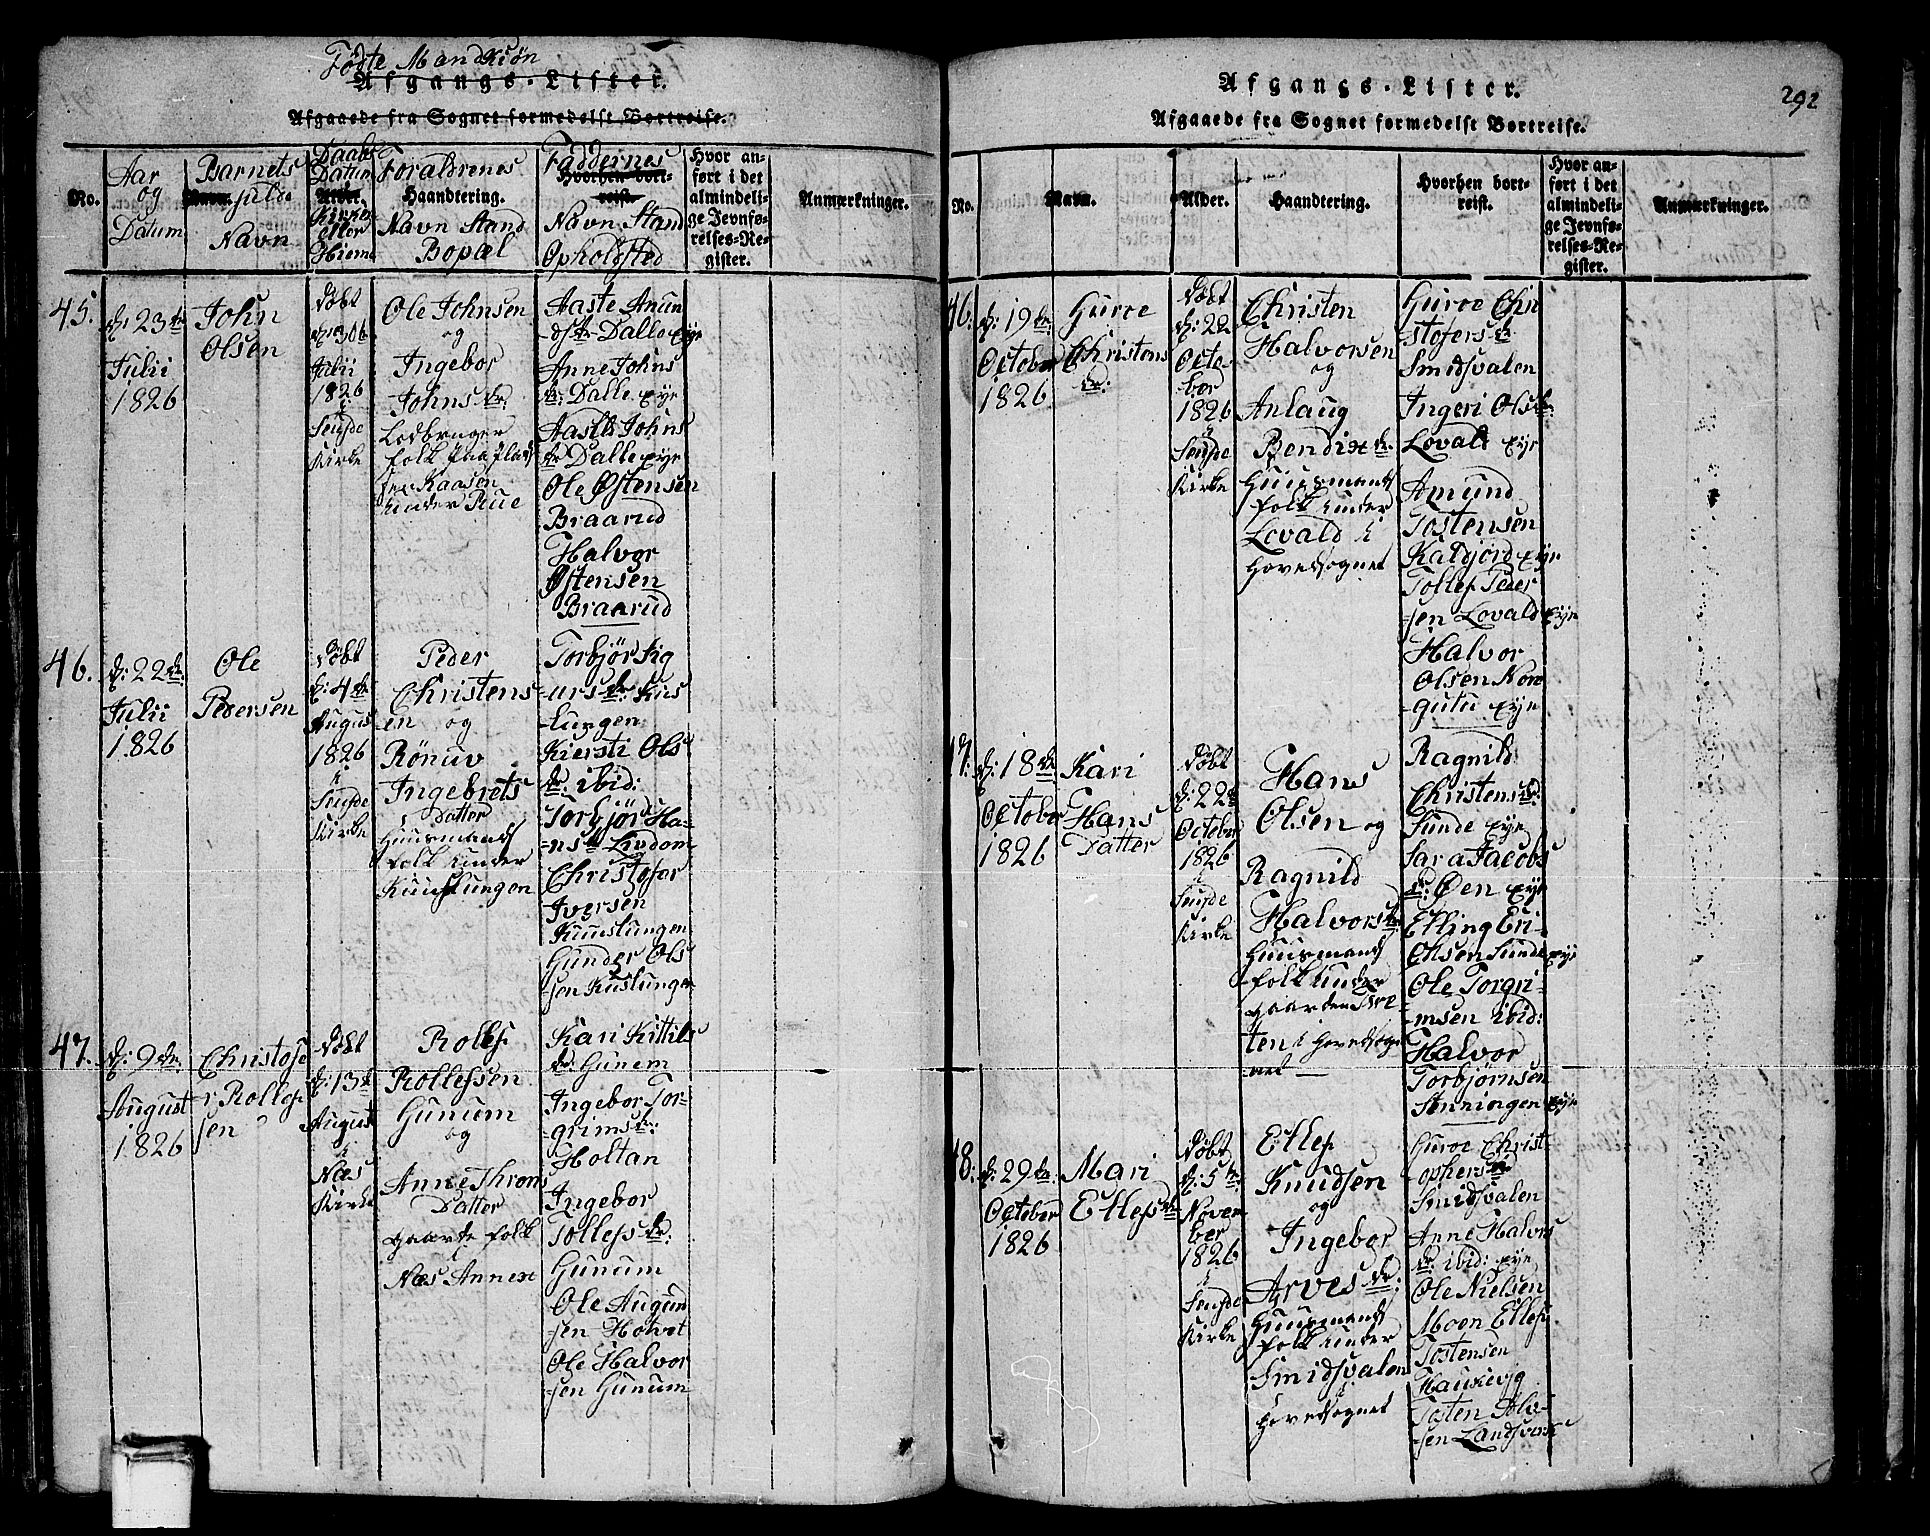 Födte Mandkiön
Afgangs-Lister.
Afgaaede fra Sognet formedelst Bortreise.
No.
Aar
og
Datum
Barnets
Navn fulde
Navn
Daabs
Datum
Alder.
Kirke
eller
Hieme
Foraldrenes
Haandtering.
Navn Stand
Bopæl
Faddernes
Hvorhen bort-
reist.
Navn Stand
Opholdsted
Hvor an-
ført i det
almindeli-
ge Jevnfø-
relses-Re-
gister.
Anmærkninger.
45.
d: 23de
Julii
1826
John
Olsen
Döbt
d: 30te
Julii
1826
i
Seufde
Kirke
Ole Johnsen
og
Ingebor
Johns dr:
Lodbruger
folk paa Plad
sen Kaasen
under Rue
Aaste Amun
dsdr Dalle
Anne Johns
dr: Dalle
Aasill Johns
dr Dalle
Ole Østensen
Braarud
Halvor
Østensen
Braarud
46.
d: 22de
Julii
1826
Ole
Pedersen
Döbt
d: 4de
August
1826
i
Seufde
Kirke
Peder
Christens
en og
Rönuv
Ingebrets
Datter
Huusmands
folk under
Kuuslungen
Torbjör Sig
-urs dr: Kus
-lungen
Kiersti Ols
dr: ibid:
Torbjör Ha-
-ns dr Livdom
Christofer
Iversen
Kuuslungen
Gunder Ols
-sen Kuslungen
47.
d: 9de
August
1826
Christofe
-r Rollef
sen
Döbt
d: 13de
August
i
Næs
Kirke
Rollef
Rollefsen
Gunum
og
Anne Throns
Datter
gaarde folk
i
Næs Annex
Kari Kittils
dr: Gunem
Ingebor Tor-
grimsdr:
Holtan
Ingebor
Tollefs dr:
Gunum
Ole Augund
-sen Hotvet
Ole Halvor
-sen Gunum
Afgangs-Lister.
292
Afgaaede fra Sognet formedelst Bortreise.
No.
Navn.
Alder.
Haandtering.
Hvorhen bort-
reist.
Hvor an-
ført i det
almindeli-
ge Jevnfø-
relses-Re-
gister.
Anmærkninger.
46.
d: 19de
October
1826
Guroe
Christens
dr:
Döbt
d: 22
Octo-
ber
1826
i
Seufde
Kirke
Christen
Halvorsen
og
Anlaug
Bendix dr
Huusmands
folk under
Lovald i
Hovedsognet
Guroe Chri
stofers dr
Smidsvalen
Ingeri Olsdr
Lovald
Amund
Tostensen
Kaldjord
Tollef Peder
-sen Lovald
Halvor
Olsen Nore
-gutu
47.
d: 18de
October
1826
Kari
Hans
Datter
Döbt
d: 22de
October
1826
i
Seufde
Kirke
Hans
Olsen og
Ragnild
Halvorsdr
Huusmands
folk under
gaarden Tvee
ten i Hovedsogn
-net
Ragnild
Christensdr:
Sunde
Sara Jacobs
dr: Øen
Etling Eri-
chsen Sunde
Ole Torgri-
-msen ibid:
Halvor
Torbjørnsen
Stenningen
48.
d: 29de
October
1826
Mari
Ellefsdr
Döbt
d: 5te
Novem
ber
1826
i
Seufde
Kirke
Ellef
Knudsen
og
Ingebor
Arves dr:
Huusmands
folk under
Smidsvalen
Hovedsognet
Guroe Christ
ophersdr
Smidsvalen
Anne Halvors
dr: ibid:
Ole Nielsen
Moen Ellef
Tostensen
Haukevig
Tosten Solv-
-sen Landsverk